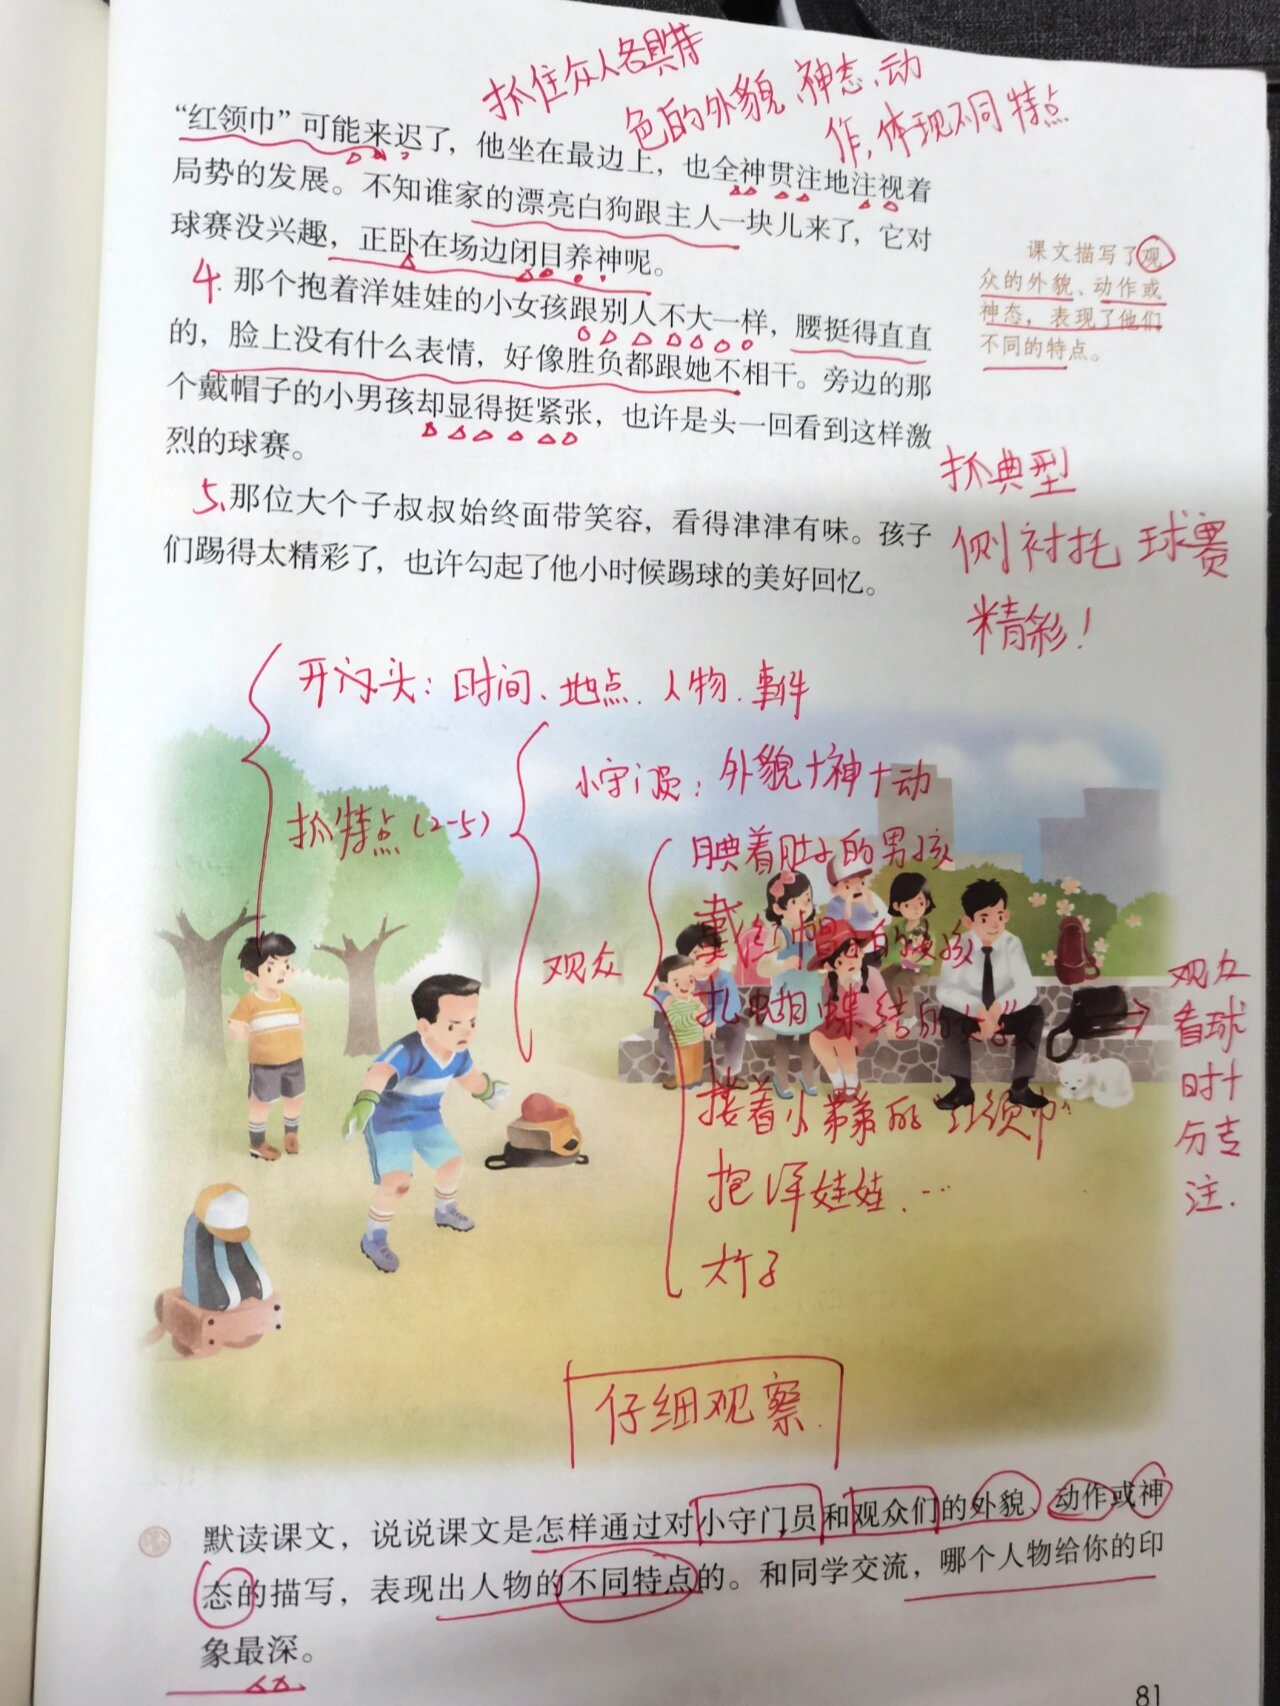 抓住众人各具特
色的外貌、神态、动
作,体现不同特点
“红领巾”可能来迟了，他坐在最边上，也全神贯注地注视着
局势的发展。不知谁家的漂亮白狗跟主人一块儿来了，它对
球赛没兴趣，正卧在场边闭目养神呢。
课文描写了观
众的外貌、动作或
神态，表现了他们
不同的特点。
4.那个抱着洋娃娃的小女孩跟别人不大一样，腰挺得直直
的，脸上没有什么表情，好像胜负都跟她不相干。旁边的那
个戴帽子的小男孩却显得挺紧张，也许是头一回看到这样激
烈的球赛。
5、那位大个子叔叔始终面带笑容，看得津津有味。孩子
们踢得太精彩了，也许勾起了他小时候踢球的美好回忆。
抓典型
侧衬托 球赛
精彩！
开门头：时间、地点、人物、事件
抓特点(2-5)
小守门员：外貌+神+动
观众
腆着肚子的男孩
戴红帽子的女孩
扎蝴蝶结的女孩
搂着小弟弟的“红领巾”
抱洋娃娃…
大个子
观众
看球
时十
分专
注.
仔细观察
默读课文，说说课文是怎样通过对小守门员和观众们的外貌、动作或神
态的描写，表现出人物的不同特点的。和同学交流，哪个人物给你的印
象最深。
81